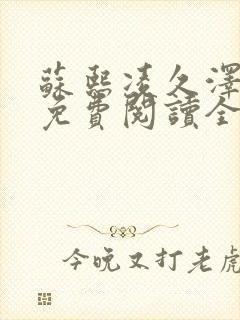 蘇熙凌久澤
免費閱讀全
今晚又打老虎